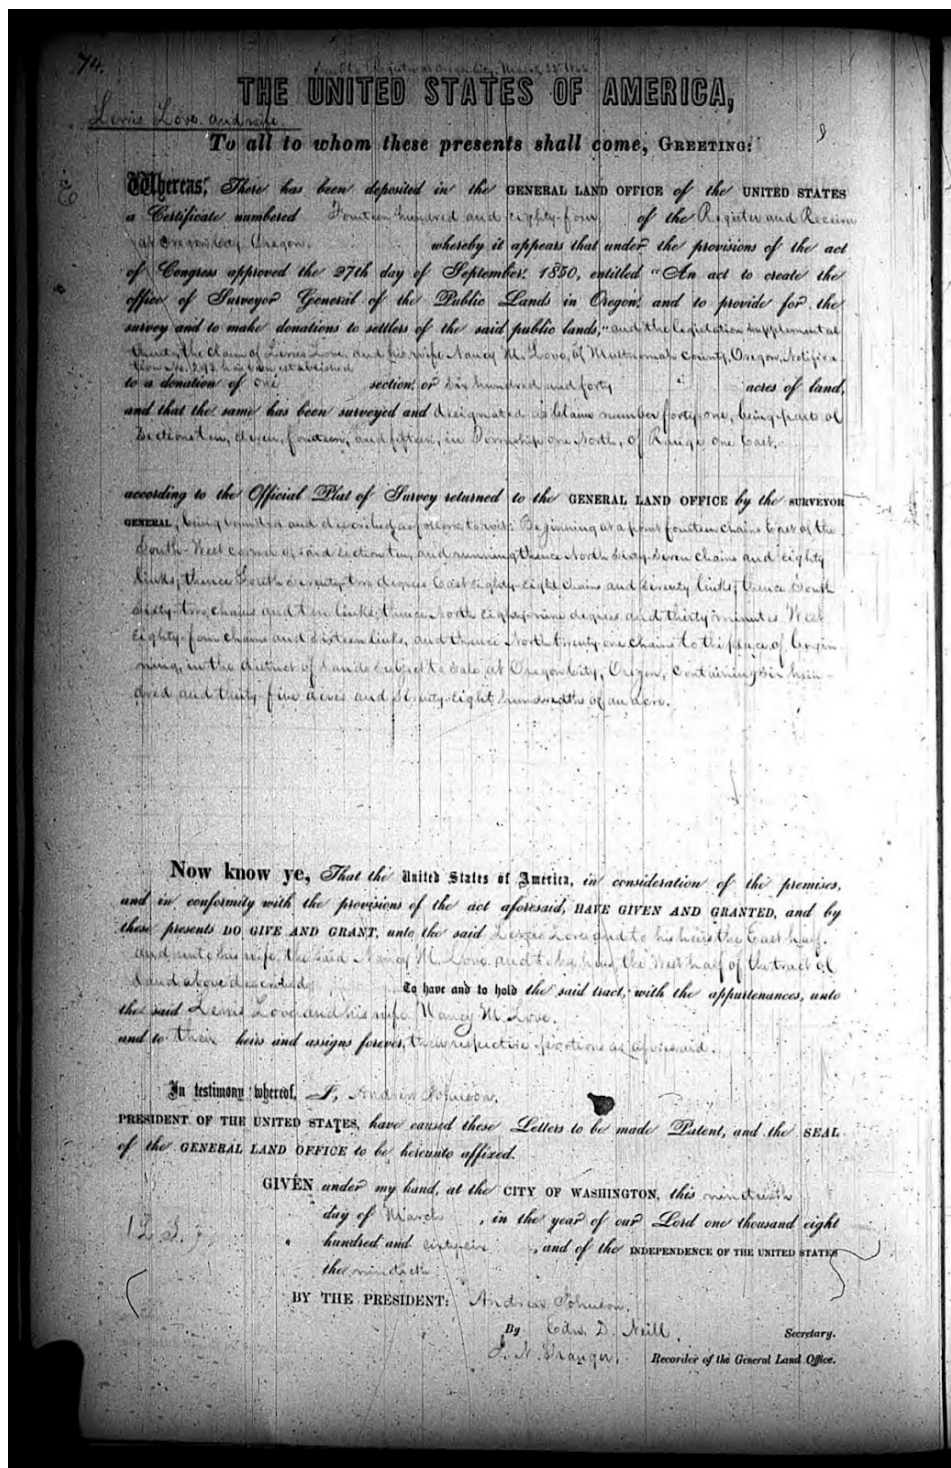 74.
THE UNITED STATES OF AMERICA,
Lewis Love and wife.
To all to whom these presents shall come, GREETING:
Whereas, There has been deposited in the GENERAL LAND OFFICE of the UNITED STATES
a Certificate numbered Fourteen hundred and eighty-four of the Register and Receiver
at Oregon City, Oregon. whereby it appears that under the provisions of the act
of Congress approved the 27th day of September, 1850, entitled "An act to create the
office of Surveyor General of the Public Lands in Oregon, and to provide for the
survey and to make donations to settlers of the said public lands," and the legislation supplemental
thereto, the claim of Lewis Love and his wife Nancy M. Love, of Multnomah County, Oregon, Notifica-
tion No. has been established
to a donation of one section, or Six hundred and forty acres of land,
and that the same has been surveyed and designated as Claim number forty-one, being parts of
Sections ten, eleven, fourteen, and fifteen, in Township one North, of Range one East,
according to the Official Plat of Survey returned to the GENERAL LAND OFFICE by the SURVEYOR
GENERAL, being bounded and described as follows, to wit: Beginning at a point fourteen chains East of the
South-West corner of said Section ten, and running thence North Sixty-Seven chains and eighty
links; thence South Seventy-two degrees East eighty-eight chains and Seventy links; thence South
Sixty-two chains and ten links; thence North eighty-nine degrees and thirty minutes West
Eighty-four chains and Sixteen links, and thence North twenty one chains to the place of begin-
ning, in the district of lands subject to sale at Oregon City, Oregon, Containing Six hun-
dred and thirty-five acres and Seventy-eight hundredths of an acre.
Now know ye, That the United States of America, in consideration of the premises,
and in conformity with the provisions of the act aforesaid, HAVE GIVEN AND GRANTED, and by
these presents DO GIVE AND GRANT, unto the said Lewis Love and to his heirs the East half
and unto his wife, the said Nancy M. Love and to her heirs, the West half of the tract of
land above described. To have and to hold the said tract, with the appurtenances, unto
the said Lewis Love and his wife Nancy M. Love.
and to their heirs and assigns forever, their respective portions as aforesaid.
In testimony whereof, I, Andrew Johnson,
PRESIDENT OF THE UNITED STATES, have caused these Letters to be made Patent, and the SEAL
of the GENERAL LAND OFFICE to be hereunto affixed.
GIVEN under my hand, at the CITY OF WASHINGTON, this nineteenth
day of March, in the year of our Lord one thousand eight
[L. S.]
hundred and sixty-six, and of the INDEPENDENCE OF THE UNITED STATES
the ninetieth
BY THE PRESIDENT: Andrew Johnson.
By Edw. D. Neill, Secretary.
J. N. Granger, Recorder of the General Land Office.